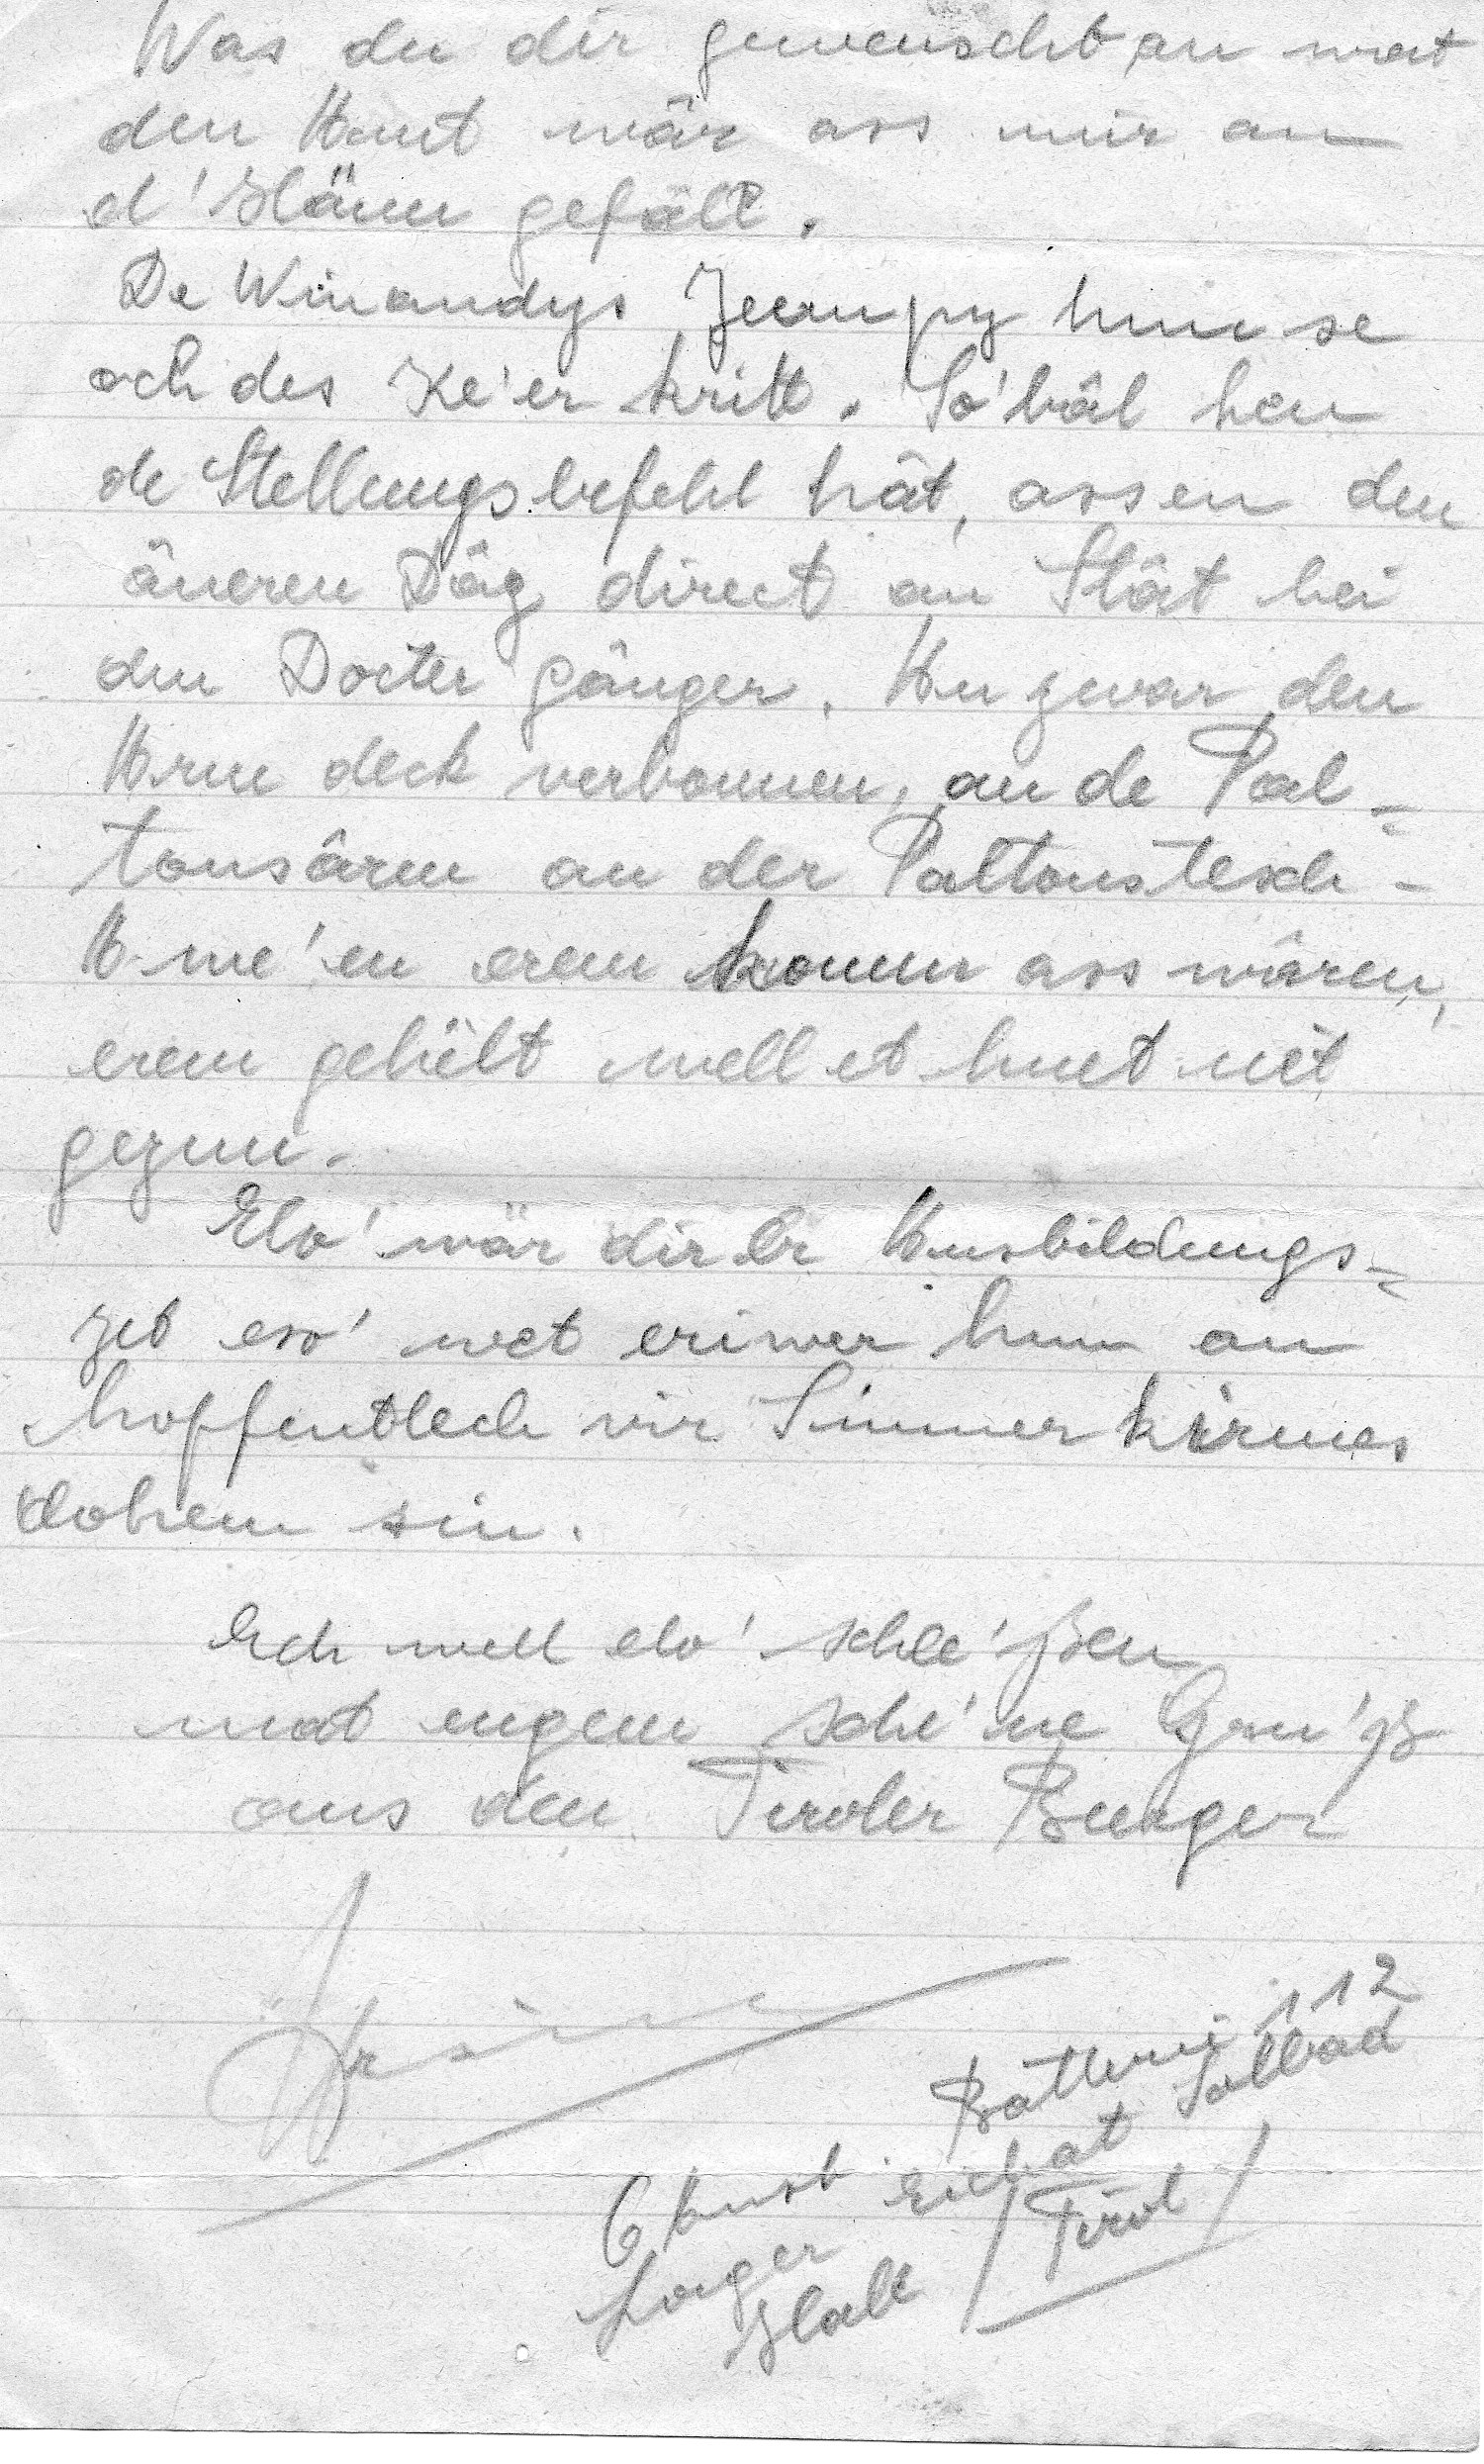 Was du dir gewenscht an wat
den Aut wär ass mir an
d'Hänn gefäll.
De Winandys Jeanpy hun se
och des Ke'er kritt. So'bâl hen
de Stellungsbefehl hât, assen den
äneren Dâg direct an Stât bei
den Docter gângen. An zwar den
Arm deck verbonnen, an de Pal-
tonsârm an der Paltonstesch-
A me'en erem komm ass wâren,
erem gehëlt well et huet nët
gezun.
Elo' wär dir är Ausbildungs-
zeit eso' wet eriwer hun an
hoffentlech vir Simmer kirmes
dohem sin.
Ech well elo' schle'ßen
mat engem sché'ne Gru'ß
aus den Tiroler Bierger
Batterie 112
6 Ausb.
Lager Eichat Solbad
Hall / Tirol /